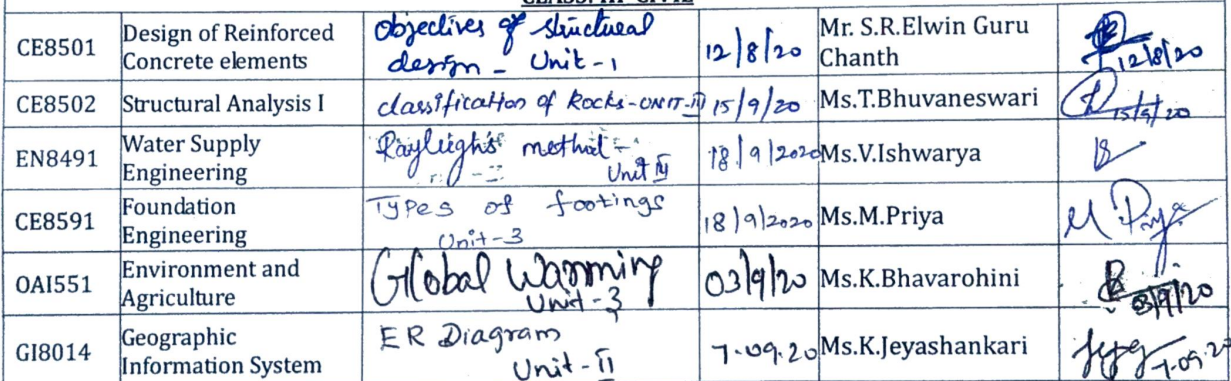 CLASS: III CIVIL
CE8501
Design of Reinforced
Concrete elements
Objectives of structural
design - Unit - 1
12/8/20
Mr. S.R.Elwin Guru
Chanth
12/8/20
CE8502
Structural Analysis I
classification of Rocks-UNIT-II
15/9/20
Ms.T.Bhuvaneswari
15/9/20
EN8491
Water Supply
Engineering
Rayleigh's method -
Unit
18/9/2020
Ms.V.Ishwarya
CE8591
Foundation
Engineering
Types of footings
Unit-3
18/9/2020
Ms.M.Priya
M Priya
OAI551
Environment and
Agriculture
Global Warming
Unit - 3
03/9/20
Ms.K.Bhavarohini
03/9/20
GI8014
Geographic
Information System
ER Diagram
Unit - II
7.09.20
Ms.K.Jeyashankari
7.09.20